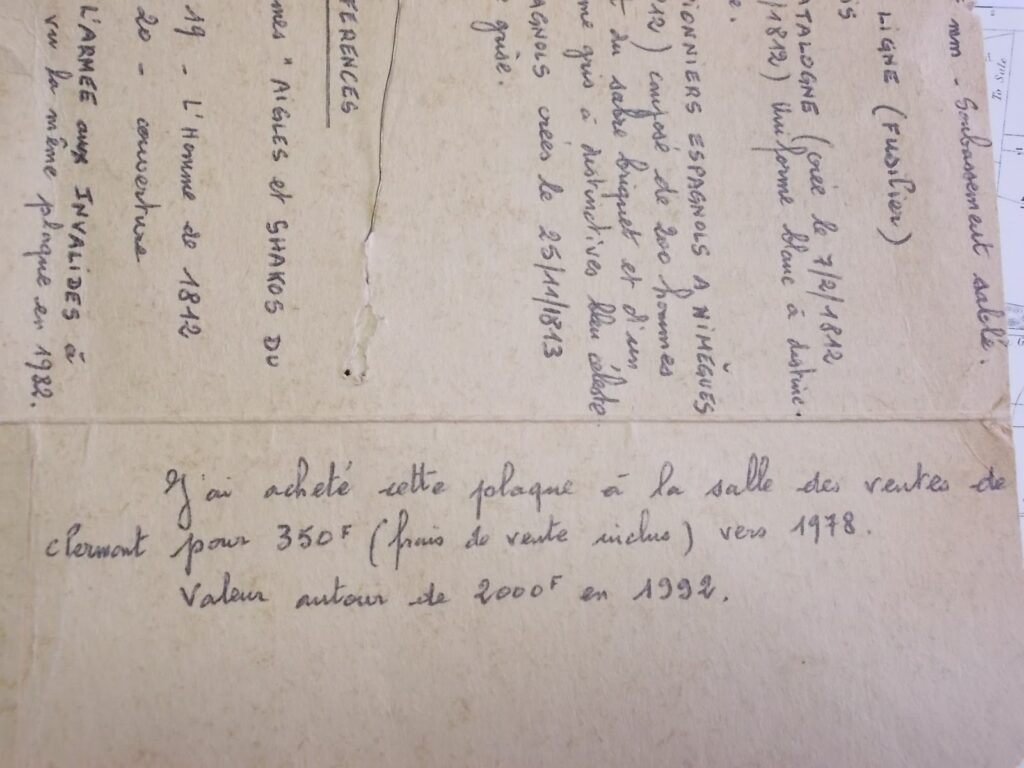 mm - Soubassement sablé.
LIGNE (FUSILIER)
ATALOGNE (créé le 7/2/1812
/1812) Uniforme blanc à distinc.
IONNIERS ESPAGNOLS A NIMÈGUES
12) composé de 200 hommes
du sabre briquet et d'un
me gris à distinctives bleu céleste
AGNOLS créés le 25/11/1813
grise.
FÉRENCES
mes " AIGLES et SHAKOS DU
19 - L'Homme de 1812
20 - couverture
L'ARMEE aux INVALIDES à
vu la même plaque en 1982.
J'ai acheté cette plaque à la salle des ventes de
Clermont pour 350F (frais de vente inclus) vers 1978.
Valeur autour de 2000F en 1992.